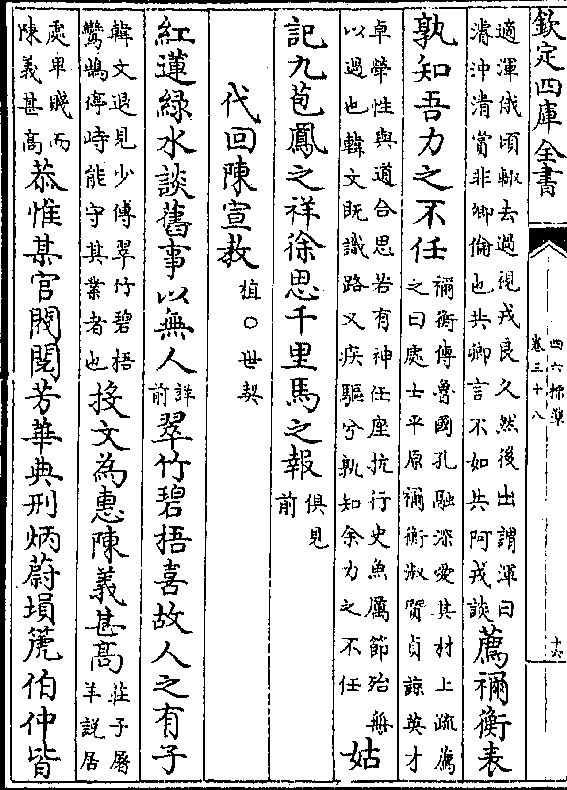 欽定四庫全書
四六標準
卷三十八
十六
適渾俄頃輒去過視戎良久然後出謂渾曰
濬沖清賞非卿倫也共卿言不如共阿戎談
薦禰衡表
孰知吾力之不任
禰衡傳魯國孔融深愛其材上疏薦
之曰處士平原禰衡淑質貞諒英才
卓犖性與道合思若有神任座抗行史魚厲節殆無
以過也韓文既識路又疾驅兮孰知余力之不任
姑
記九苞鳳之祥徐思千里馬之報
俱見
前
代回陳宣教
○世契
紅蓮綠水談舊事以無人
詳
前
翠竹碧梧喜故人之有子
韓文退見少傅翠竹碧梧
鸞鵠停峙能守其業者也
投文為惠陳義甚高
莊子屠
羊說居
處卑賤而
陳義甚高
恭惟某官閥閱芳華典刑炳蔚塤箎伯仲皆